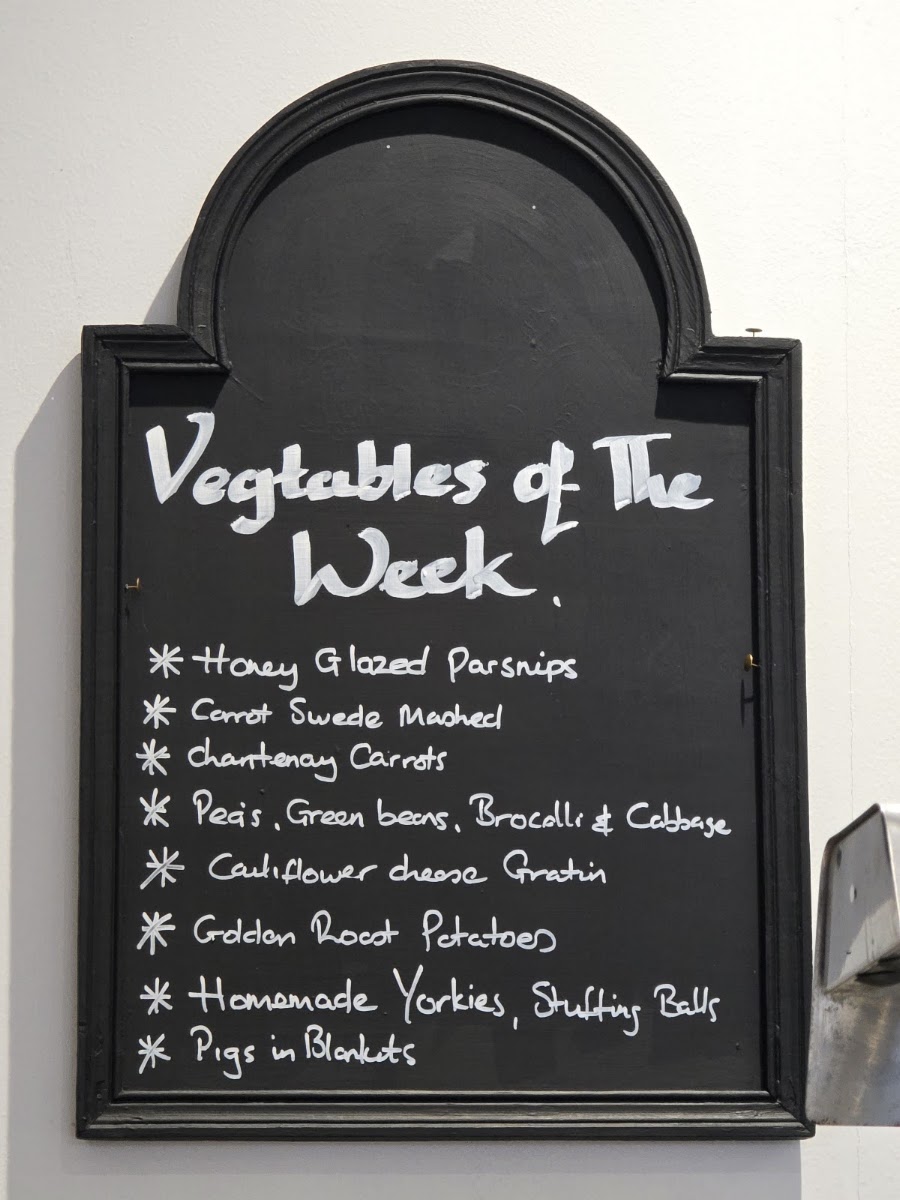 Vegtables of The
Week.
* Honey Glazed Parsnips
* Carrot Swede Mashed
* Chantenay Carrots
* Peas, Green beans, Brocolli & Cabbage
* Cauliflower cheese Gratin
* Golden Roast Potatoes
* Homemade Yorkies, Stuffing Balls
* Pigs in Blankets